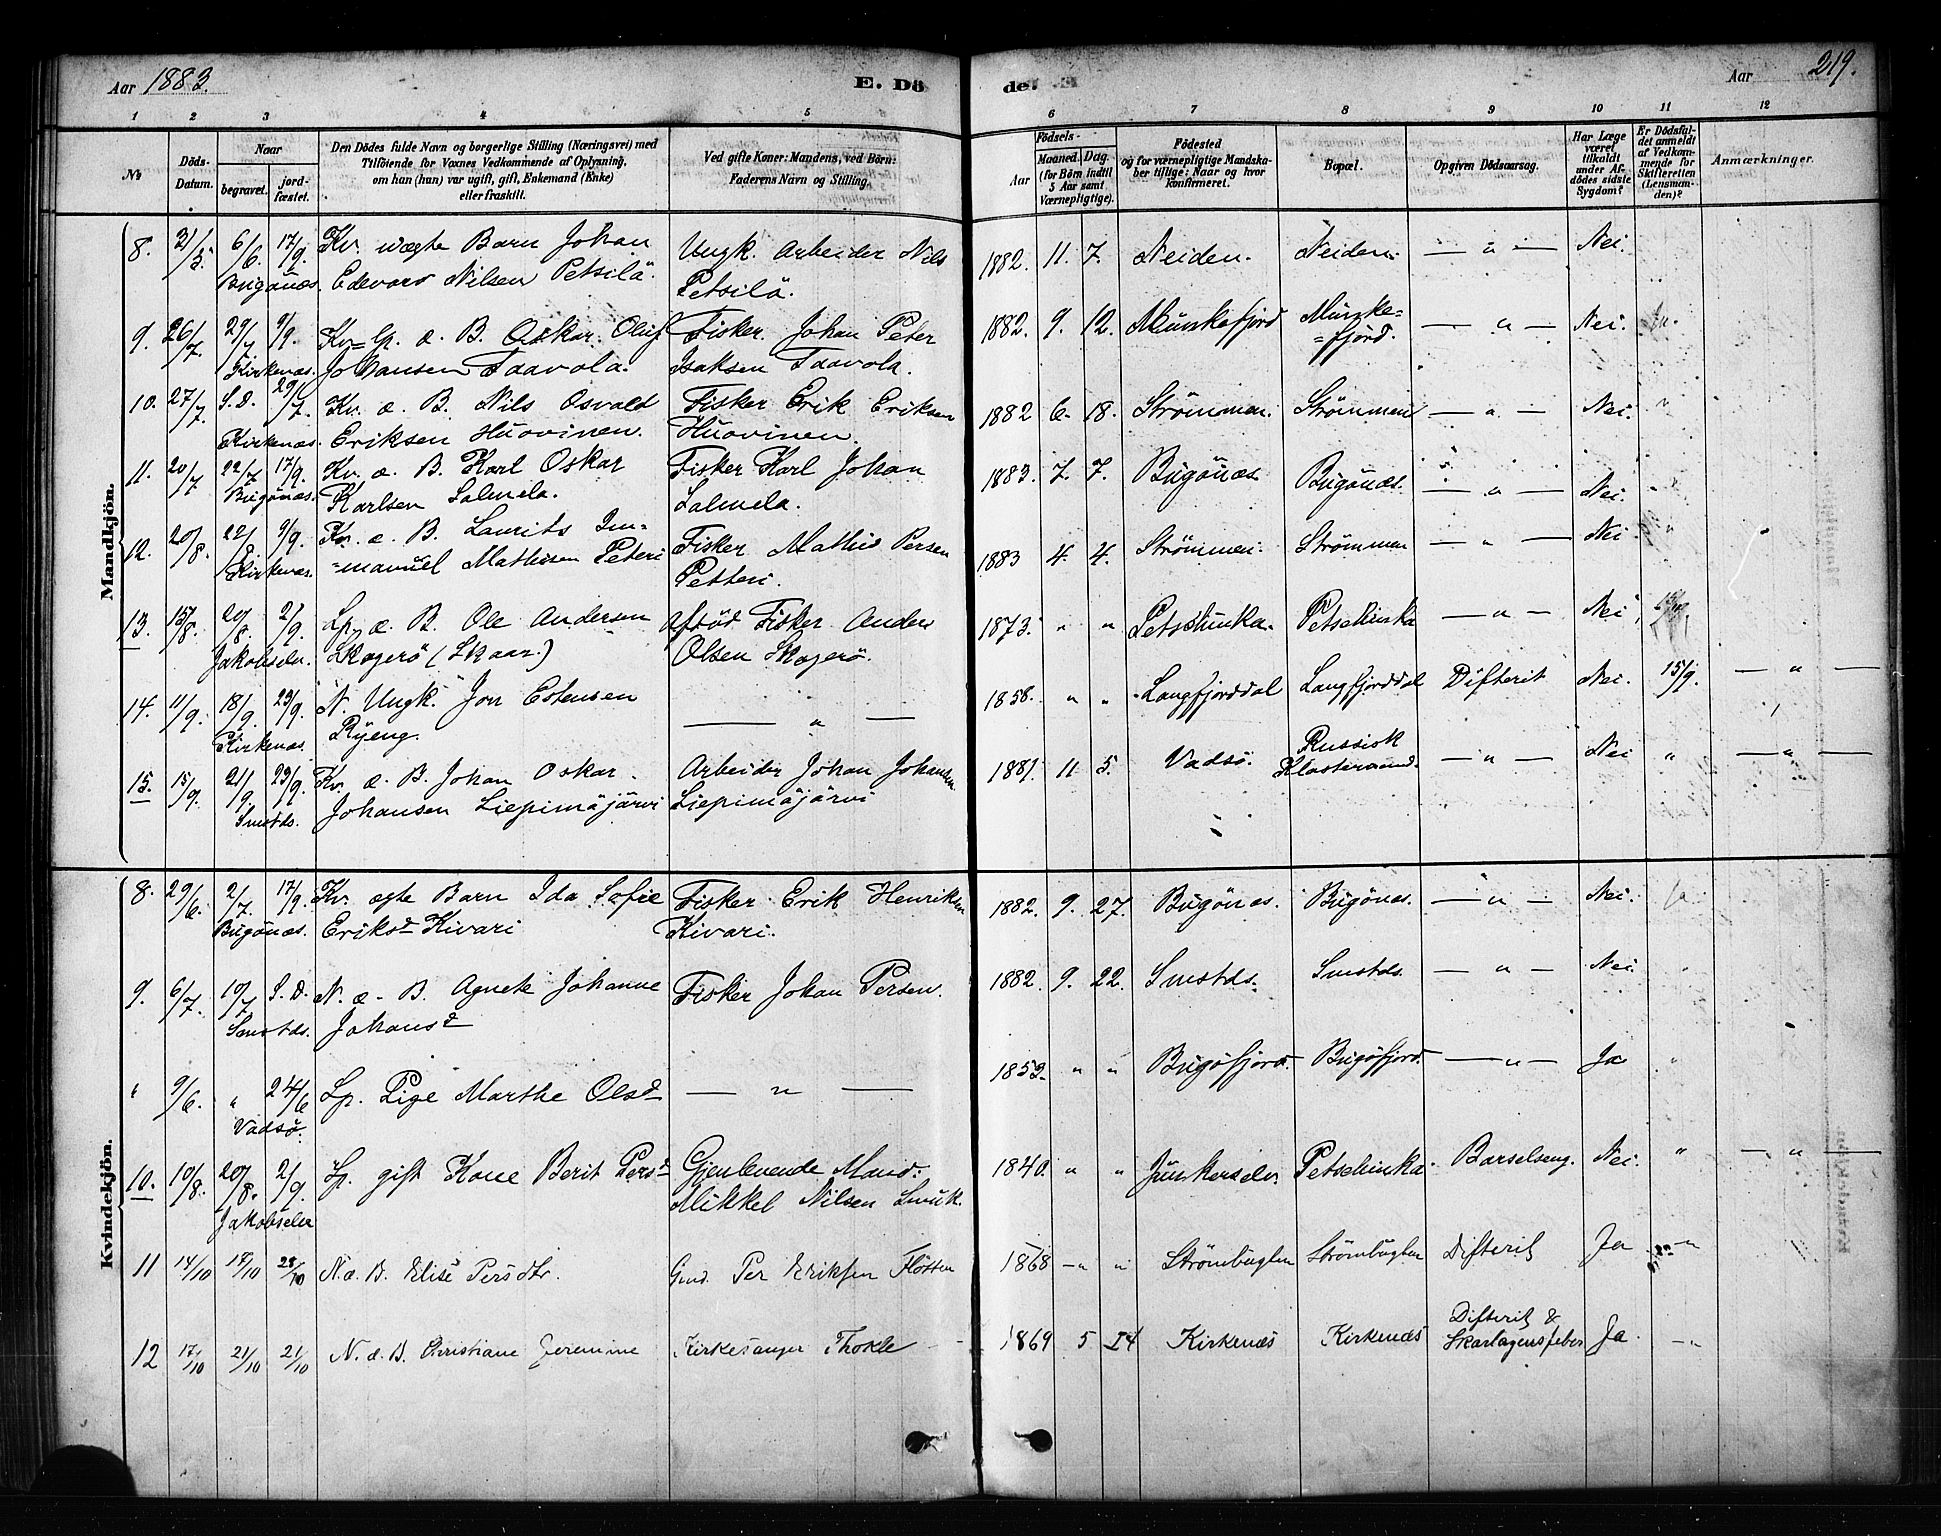 Aar 1883. E. Dö de. Aar 219.
1 2 3 4 5 6 7 8 9 10 11 12
No
Döds-Datum.
Naar
begravet.
jordfæstet.
Den Dödes fulde Navn og borgerlige Stilling (Næringsvei) med
Tilföiende for Voxnes Vedkommende af Oplysning,
om han (hun) var ugift, gift, Enkemand (Enke)
eller fraskilt.
Ved gifte Koner: Mandens, ved Börn:
Faderens Navn og Stilling.
Födsels-
Aar
Maaned. Dag.
(for Börn indtil
5 Aar samt
Værnepligtige).
Födested
og for værnepligtige Mandskaber
tillige: Naar og hvor
konfirmeret.
Bopæl.
Opgiven Dödsaarsag.
Har Læge
været
tilkaldt
under Afdödes
sidste
Sygdom?
Er Dödsfaldet
anmeldt
af Vedkommende
for
Skifteretten
(Lensmanden)?
Anmærkninger.
Mandkjön.
8. 31/5. 6/6. 17/9. Kv. ægte Barn Johan Ungk. Arbeider Nils 1882. 11. 7. Neiden. Neiden. — " — Nei.
Bugönæs. Edevard Nilsen Petsilä. Petsilä.
9. 26/7. 29/7. 9/9. Kv= Lp. æ. B. Oskar Oluf Fisker Johan Peter 1882. 9. 12. Munkefjord Munke= — " — Nei.
Kirkenæs. Johansen Taavola. Isaksen Taavola. =fjord.
10. 27/7. S.D. 29/7. Kv. æ. B. Nils Osvald Fisker Erik Eriksen 1882 6. 18. Strömmen. Strömmen — " — Nei. "
Kirkenæs. Eriksen Huovinen. Huovinen.
11. 20/7 22/7 17/9. Kv. æ. B. Karl Oskar Fisker Karl Johan 1883. 7. 7. Bugönæs. Bugönæs. — " — Nei.
Bugönæs. Karlsen Salmela. Salmela.
12. 20/8. 22/8. 9/9. Kv. æ. B. Laurits Im= Fisker Mathis Persen 1883 4. 4. Strömmen. Strömmen — " — Nei "
Kirkenæs. =manuel Mathisen Peteri Petteri.
13. 15/8. 20/8. 2/9. Lp. æ. B. Ole Andersen afdöd Fisker Anders 1873. " " Petschinka. Petschinka — " — Nei
Jakobselv. Skogerö (Skaar.) Olsen Skogerö.
14. 11/9. 18/9. 23/9. N. Ungk. Jon Estensen — " — 1858. " " Langfjorddal Langfjorddal Difterit Nei. 15/9. — " —
Kirkenæs. Ryeng.
15. 15/9. 21/9. 23/9. Kv. æ. B. Johan Oskar Arbeider Johan Johansen 1881. 11 5. Vadsö. Russisk — " — Nei " — " —
Smstds. Johansen Liepimäjärvi Liepimäjärvi Klostersund.
Kvindekjön.
8. 29/6. 2/7. 17/9. Kv. ægte Barn Ida Sofie Fisker Erik Henriksen 1882. 9. 27. Bugönæs. Bugönæs. — " — Nei.
Bugönæs. Eriksd Kivari Kivari.
9. 6/7. 10/7 S.D. N. æ. B. Agnete Johanne Fisker Johan Persen. 1882. 9. 22. Smstds. Smstds. — " — Nei. "
Smstds. Johansd
" 9/6. " 24/6 Lp. Pige Marthe Olsd — " — 1853. " " Bugöfjord. Bugöfjord. — " — Ja "
Vadsö.
10. 10/8. 20/8. 2/9. Lp. gift Kone Berit Persd Gjenlevende Mand. 1840. " " Junkerselv Petschinka. Barselseng. Nei. " — " —
Jakobselv Mikkel Nilsen Smuk.
11 14/10 17/10 28/10 N. æ. B. Elise Persdtr. Gmd. Per Eriksen Flötten 1868 — " " Strömbugten Strömbugten Difterit Ja — "
12 17/10 21/10 21/10 N. æ. B. Christiane Jeremine Kirkesanger Thokle 1869 5 14 Kirkenæs Kirkenæs Difterit & Skarlagensfeber Ja — "